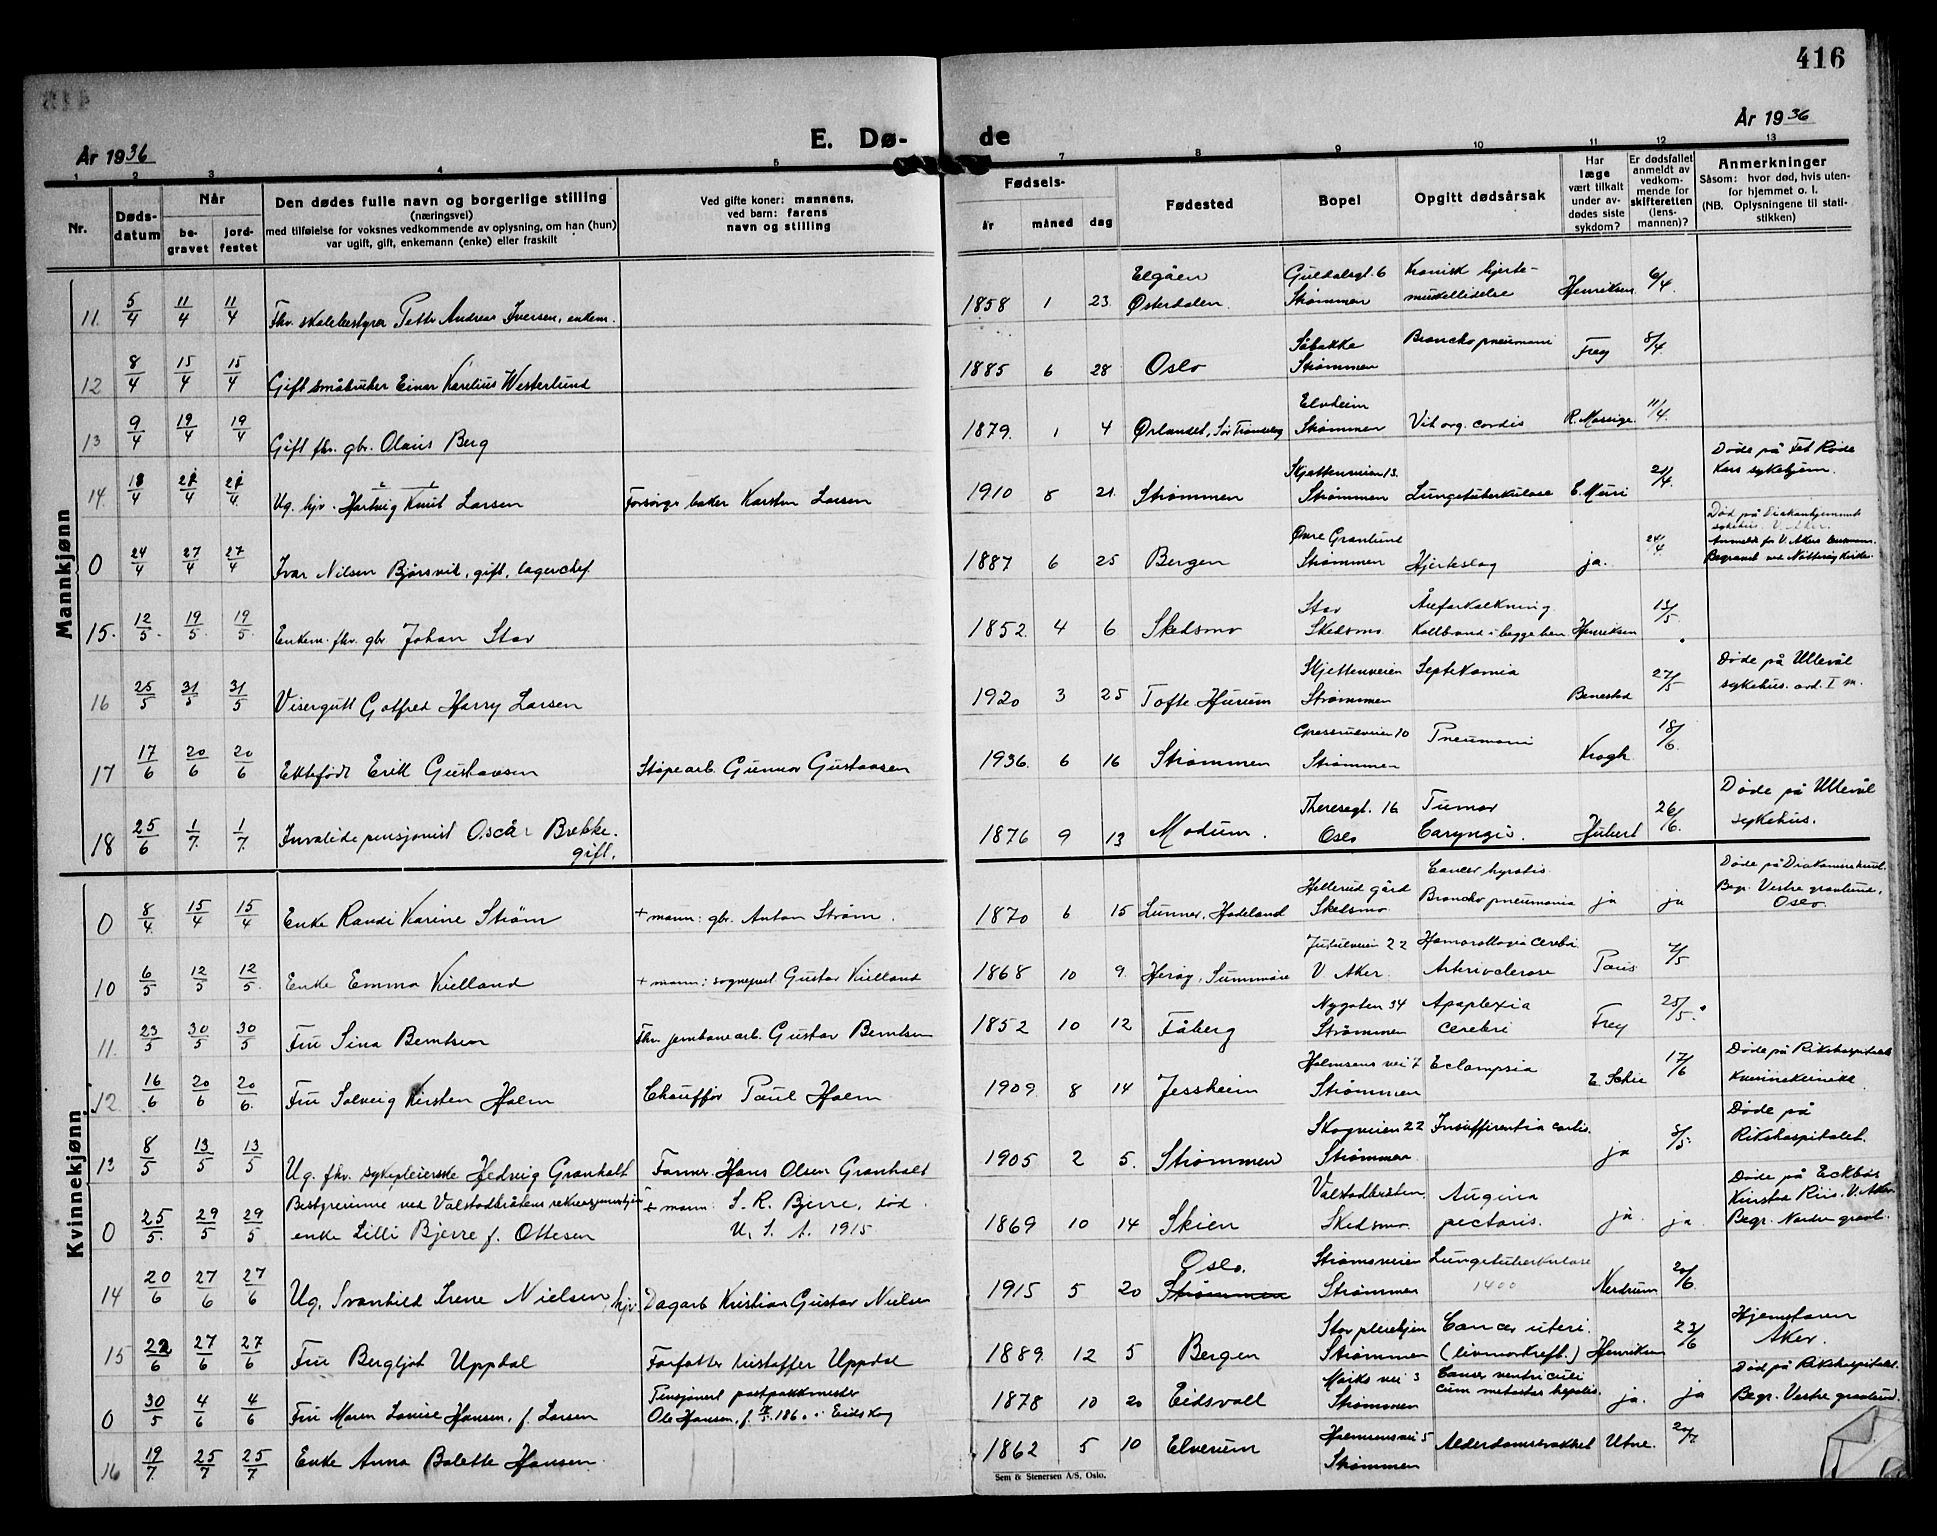 416
År 1936
E. Dø-
de
År 1936
1 2 3 4 5 7 8 9 10 11 12 13
Nr.
Døds-
datum
Når
be-
gravet
jord-
festet
Den dødes fulle navn og borgerlige stilling
(næringsvei)
med tilføielse for voksnes vedkommende av oplysning, om han (hun)
var ugift, gift, enkemann (enke) eller fraskilt
Ved gifte koner: mannens,
ved barn: farens
navn og stilling
Fødsels-
år måned dag
Fødested
Bopel
Opgitt dødsårsak
Har
læge
vært tilkalt
under av-
dødes siste
sykdom?
Er dødsfallet
anmeldt av
vedkom-
mende for
skifteretten
(lens-
mannen)?
Anmerkninger
Såsom: hvor død, hvis uten-
for hjemmet o. l.
(NB. Oplysningene til stati-
stikken)
Mannkjønn
11. 5/4 11/4 11/4 Fhv. skolebestyrer Petter Andreas Iversen, enkem. 1858 1 23
Elgåen
Østerdalen
Guldalsgt. 6
Strømmen
Kronisk hjerte-
muskellidelse
Henriksen 6/4.
12 8/4 15/4 15/4 Gift småbruker Einar Karelius Westerlund 1885 6 28 Oslo
Såbakke
Strømmen
Bronchopneumoni
Frey 8/4.
13 9/4 19/4 19/4 Gift fhv. gbr. Olaus Berg 1879. 1 4 Ørlandet, Sør Trøndelag
Elvheim
Strømmen
Vit. org. cordis 11/4.
14. 18/4 /4 /4 Ug. hjv. Hartvig Knut Larsen Forsørger baker Karsten Larsen 1910 8 21. Strømmen
Skjettenveien 13.
Strømmen
Lungetuberkulose E. Muri 21/4.
Døde på Fet Røde
Kors sykehjem.
0 24/4 27/4 27/4 Ivar Nilsen Bjørsvik, gift, lagerchef. 1887 6 25 Bergen
Øvre Granlund
Strømmen
Hjerteslag ja. 24/4
Død på Diakonhjemmets
sykehus. V. Aker.
Anmeldt for V. Akers lensmann.
Begravet ved Nøtterøy kirke.
15. 12/5. 19/5. 19/5. Enkem. fhv. gbr. Johan Stav 1852. 4 6 Skedsmo
Stav
Skedsmo.
Åreforkalkning
Koldbrand i begge ben Henriksen 13/5
16 25/5 31/5 31/5 Visergutt Gotfred Harry Larsen 1920 3 25 Tofte Hurum
Skjettenveien
Strømmen
Septikæmia
Benestad 27/5
Døde på Ullevål
sykehus. avd. I m.
17 17/6 20/6 20/6 Ektefødt Erik Gustavsen Støpearb. Gunnar Gustavsen 1936. 6 16 Strømmen
Strømmen
Pneumoni Krogh 18/6.
18 25/6 1/7. 1/7. Invalidepensjonist Oscar Brekke.
gift.
1876 9 13 Modum.
Theresegt. 16
Oslo
Tumor
Laryngis. Hubert 26/6.
Døde på Ullevål
sykehus.
Kvinnekjønn
0 8/4. 15/4 15/4 Enke Randi Karine Strøm + mann: gbr. Anton Strøm. 1870 6 15 Lunner, Hadeland
Hellerud gård
Skedsmo.
Cancer hepatis
Bronchopneumonia ja ja
Døde på Diakonissehuset.
Begr. Vestre gravlund,
Oslo.
10 6/5 12/5 12/5. Enke Emma Kielland + mann: sogneprest Gustav Kielland 1868 10 9. Herøy, Sunnmøre
Jutulveien 22
V. Aker.
Hæmorrhagia cerebri
Arteriosclerose Paus 7/5
11. 23/5 30/5 30/5 Fru Sina Berntsen Fhv. jernbanearb. Gustav Berntsen 1852 10 12 Fåberg
Nygaten 34
Strømmen
Apoplexia
cerebri Frey 25/5.
12. 16/6 20/6 20/6. Fru Solveig Kirsten Holm Chauffør Paul Holm 1909. 8 14 Jessheim
Holmsens vei 7
Strømmen
Eclampsia E. Schie 17/6
Døde på Rikshospitalets
kvinneklinikk.
13 8/5 13/5 13/5 Ug. fhv. sykepleierske Hedvig Granholt Former. Hans Olsen Granholt 1905 2 5. Strømmen
Skogveien 22
Strømmen.
Insufficientia cordis. ja 8/5.
Døde på
Rikshospitalet.
0 25/5. 29/5 29/5
Bestyrerinne ved Valstadbråtens rekreasjonshjem
enke Lilli Bjerre f. Ottesen
+ mann: S. R. Bjerre, død
U. S. A. 1915
1869 10 14 Skien
Valstadbråten
Skedsmo.
Angina
pectoris. ja. ja.
Døde på Eckbos
Begr. Nordre gravl.
14 20/6 27/6 27/6 Ug. Svanhild Irene Nielsen, hjv. Dagarb. Kristian Gustav Nielsen 1915 5 20
Oslo.
Strømmen
Strømsveien
Strømmen
Lungetuberkulose
1400
Nerdrum 20/6.
15 22/6 27/6 27/6 Fru Bergljot Uppdal Forfatter Kristoffer Uppdal 1889. 12 5 Bergen
Stav pleiehjem
Strømmen
Cancer uteri.
(livmorkreft.) Henriksen 23/6
Hjemstavn
Aker.
0 30/5 4/6 4/6 Fru Maren Louise Hansen, f. Larsen
Pensjonert postpakkmester
Ole Hansen, f. 186. i Eidskog
1878 10 20 Eidsvoll
Marks vei 3
Strømmen
Cancer ventriculi
cum metastas hepatis. ja. ja
Død på Rikshospitalet.
Begr. Vestre gravlund.
16 19/7. 25/7 25/7 Enke Anna Bolette Hansen. 1862 5 10 Elverum
Holmsensvei 5
Strømmen
Alderdomssvakhet Utne. 20/7
Sem & Stenersen A/S, Oslo.